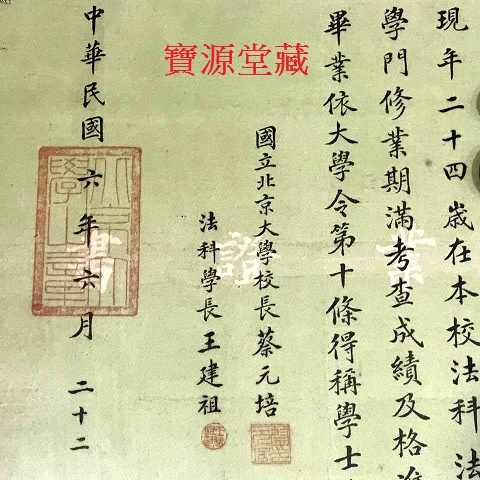 寶源堂藏
現年二十四歲在本校法科法
學門修業期滿考查成績及格准
畢業依大學令第十條得稱學士
國立北京大學校長蔡元培
法科學長王建祖
中華民國六年六月二十二
業
證
書